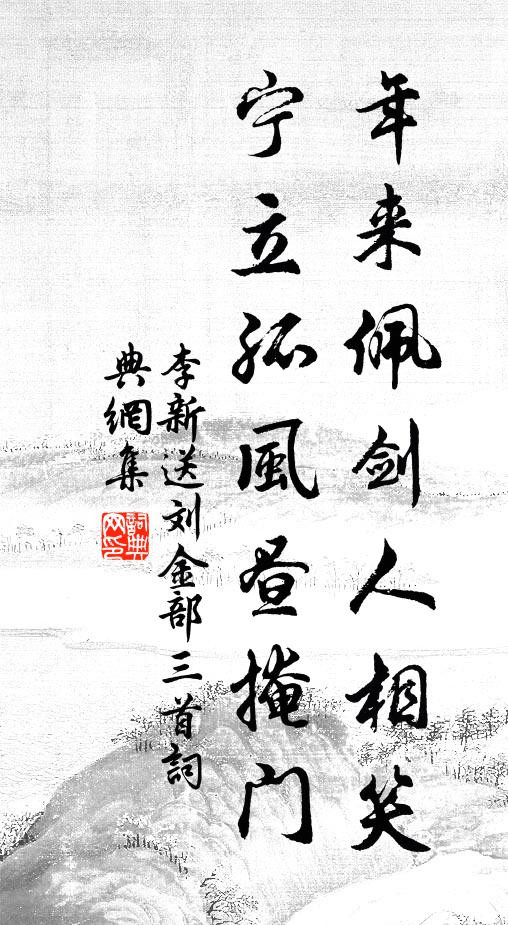 年来佩剑人相笑
宁立孤風昼掩门
李新送刘金部三首詞
典網集
詞典网印